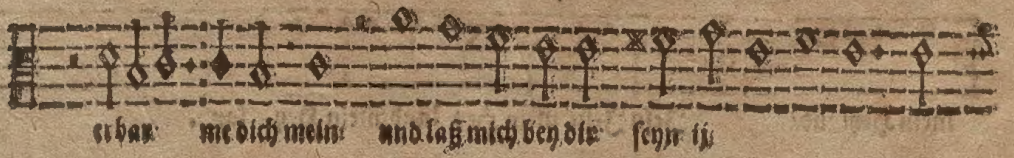 erbar⸗ me dich mein⸗ und laß mich bey dir seyn ij